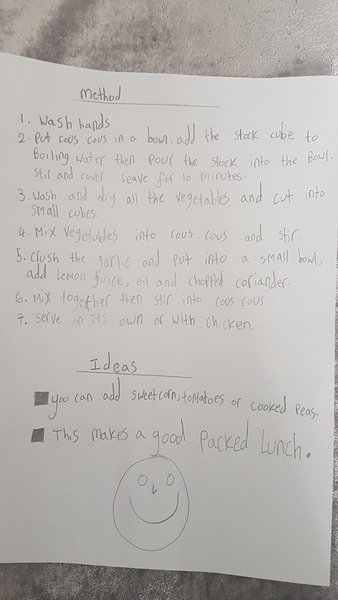 Method
1. Wash hands
2 Put cous cous in a bowl, add the stock cube to
Boiling water then pour the stock into the Bowl.
Stir and cover. leave for 10 minutes.
3. Wash and dry all the vegetables and cut into
small cubes.
4. Mix vegetables into cous cous and stir.
5. Crush the garlic and put into a small bowl,
add lemon juice, oil and chopped coriander.
6. Mix together then stir into cous cous
7. Serve on its own or with chicken.
Ideas
you can add sweetcorn, tomatoes or cooked peas.
This makes a good Packed Lunch.